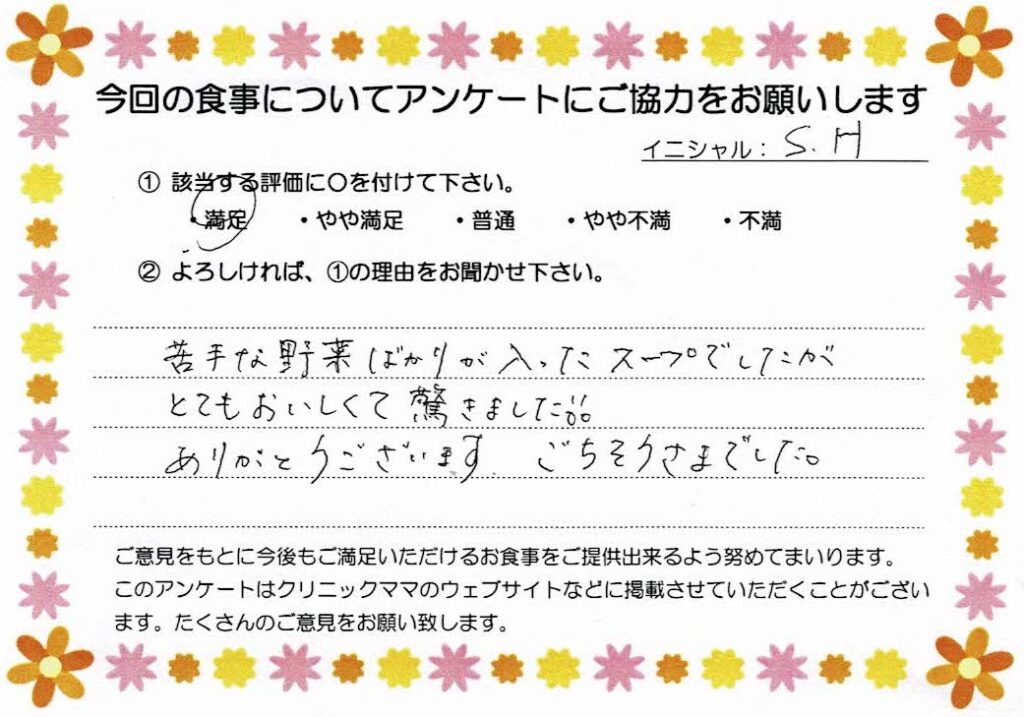 今回の食事についてアンケートにご協力をお願いします
イニシャル： S.H
① 該当する評価に〇を付けて下さい。
・満足 ・やや満足 ・普通 ・やや不満 ・不満
② よろしければ、①の理由をお聞かせ下さい。
苦手な野菜ばかりが入ったスープでしたが
とてもおいしくて驚きました!!
ありがとうございます。ごちそうさまでした。
ご意見をもとに今後もご満足いただけるお食事をご提供出来るよう努めてまいります。
このアンケートはクリニックママのウェブサイトなどに掲載させていただくことがござい
ます。たくさんのご意見をお願い致します。